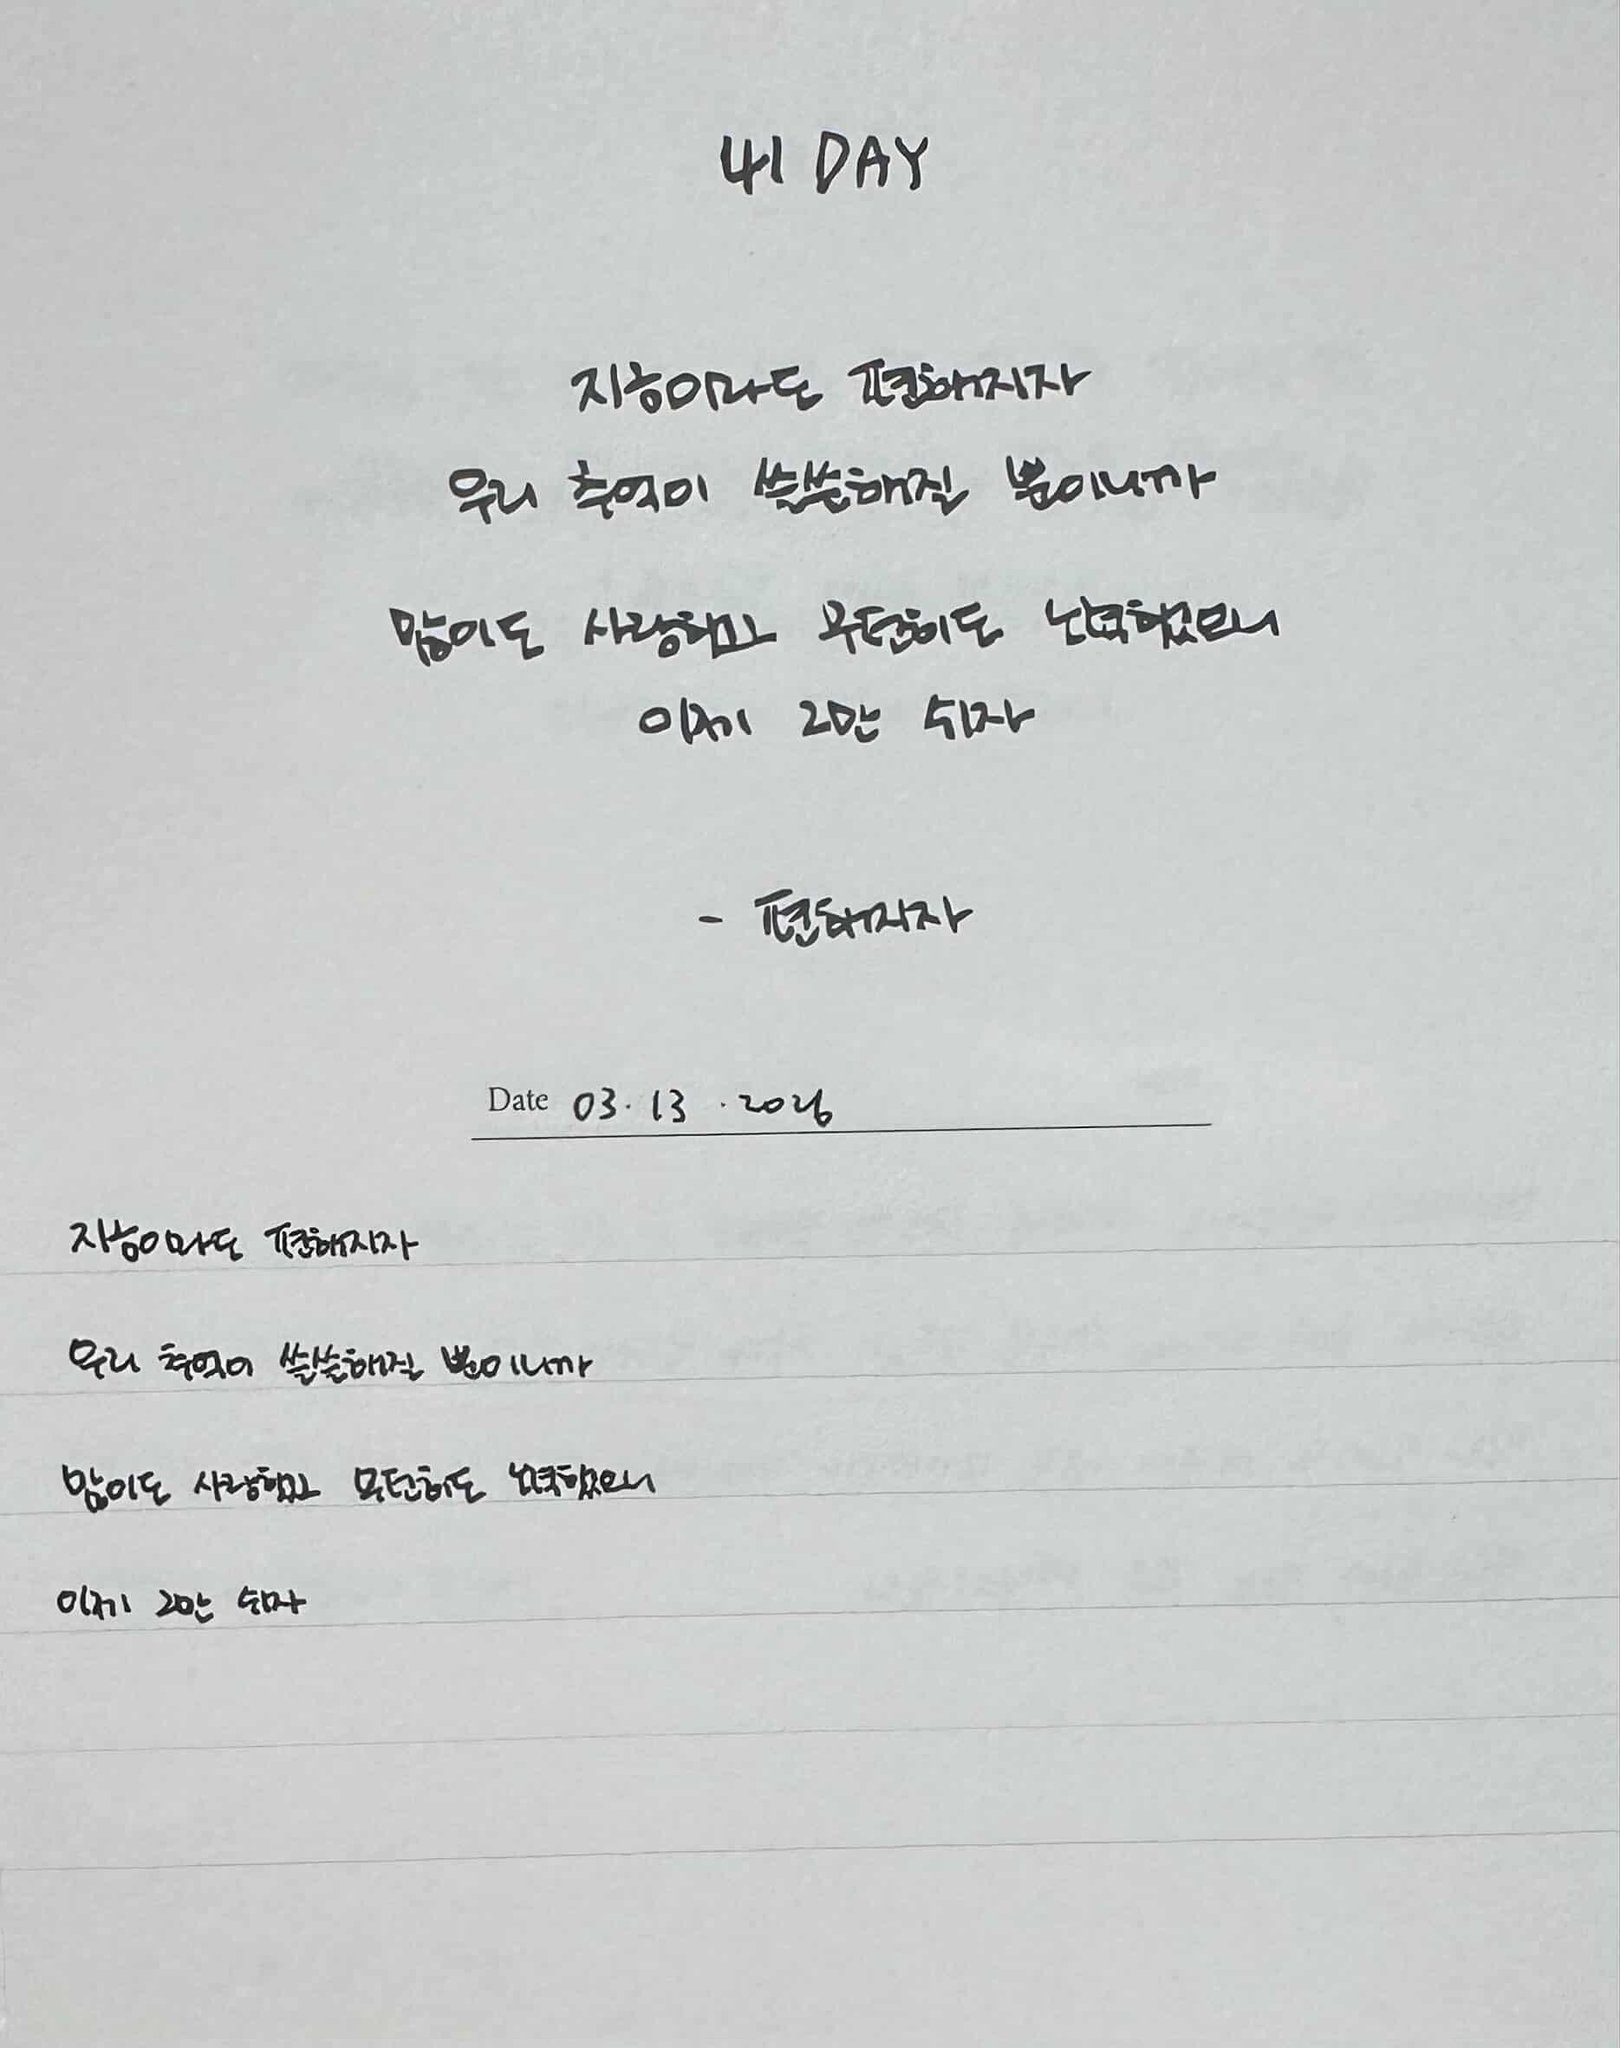 41 DAY
지금이라도 편해지자
우리 추억이 쓸쓸해질 뿐이니까
많이도 사랑했고 무던히도 노력했으니
이제 그만 쉬자
- 편해지자
Date 03. 13 . 2026
지금이라도 편해지자
우리 추억이 쓸쓸해질 뿐이니까
많이도 사랑했고 무던히도 노력했으니
이제 그만 쉬자